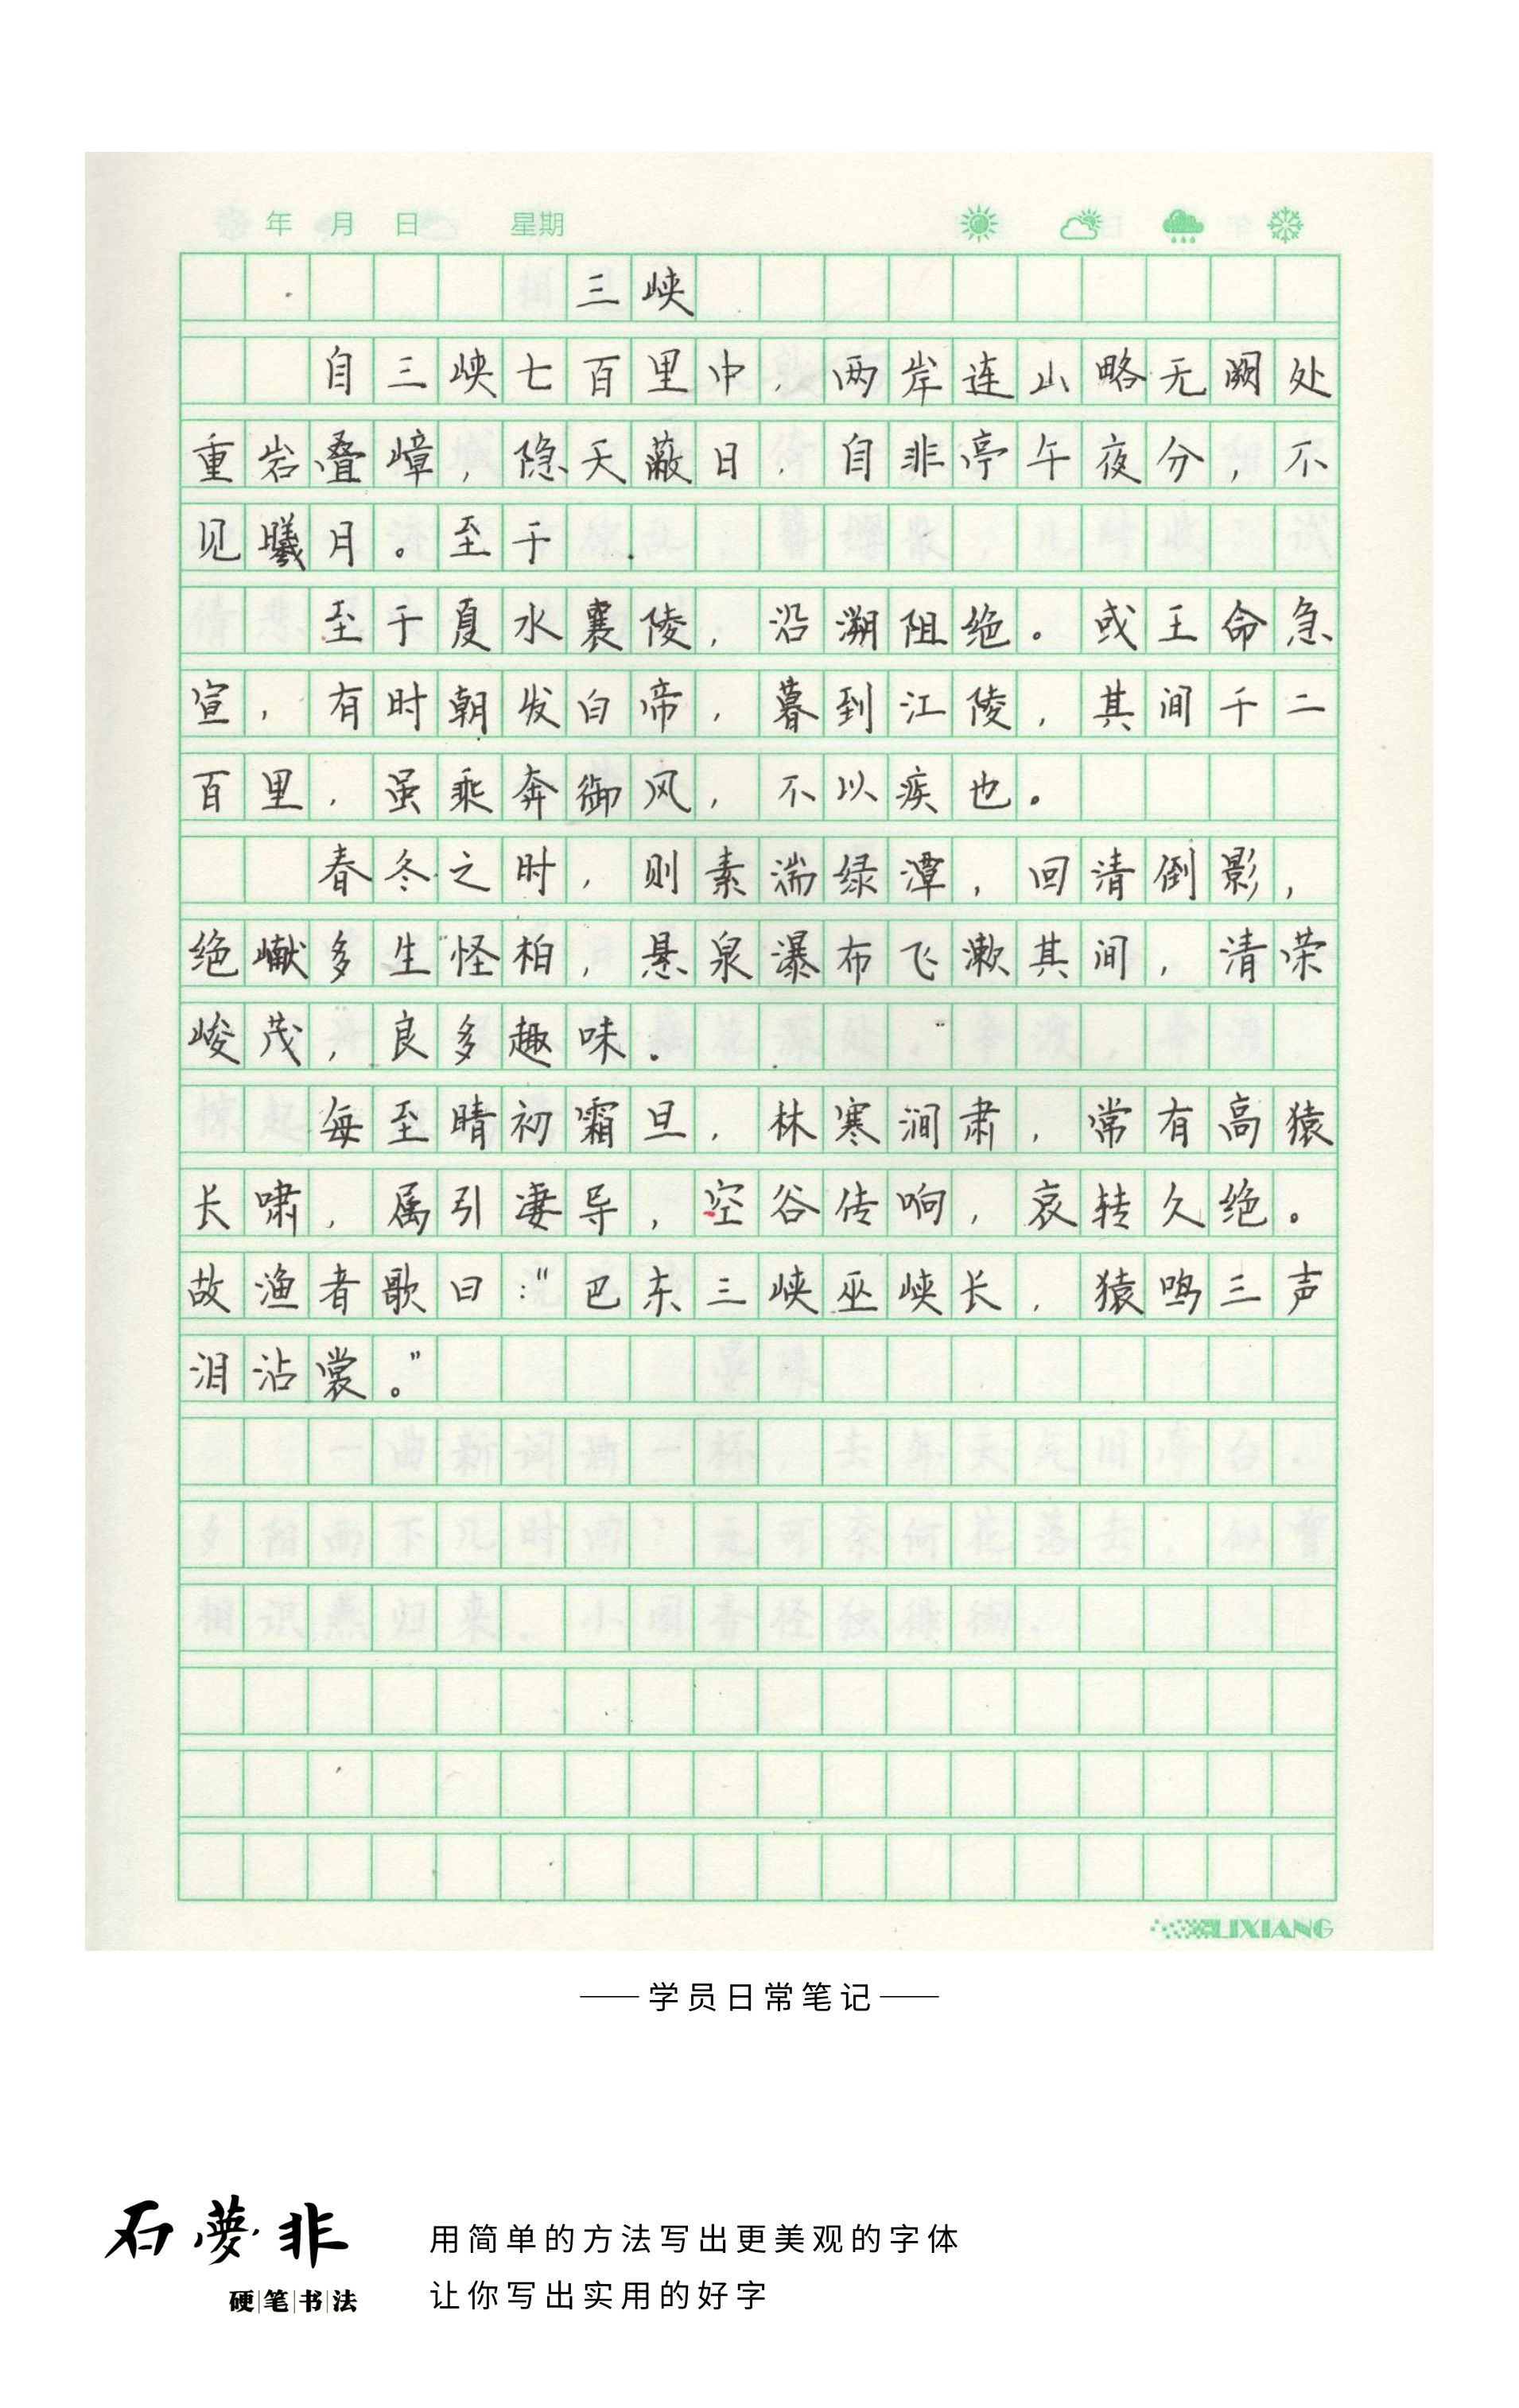 年 月 日 星期
三峡
自三峡七百里中，两岸连山略无阙处
重岩叠嶂，隐天蔽日，自非亭午夜分，不
见曦月。至于
至于夏水襄陵，沿溯阻绝。或王命急
宣，有时朝发白帝，暮到江陵，其间千二
百里，虽乘奔御风，不以疾也。
春冬之时，则素湍绿潭，回清倒影，
绝巘多生怪柏，悬泉瀑布飞漱其间，清荣
峻茂，良多趣味．
每至晴初霜旦，林寒涧肃，常有高猿
长啸，属引凄导，空谷传响，哀转久绝。
故渔者歌曰："巴东三峡巫峡长，猿鸣三声
泪沾裳。"
一曲新词 一杯，去年天气旧亭台．
夕阳西下几时回？无可奈何花落去，似曾
相识燕归来．小园香径独徘徊．
LIXIANG
——学员日常笔记——
石夢非
硬|笔|书|法
用简单的方法写出更美观的字体
让你写出实用的好字